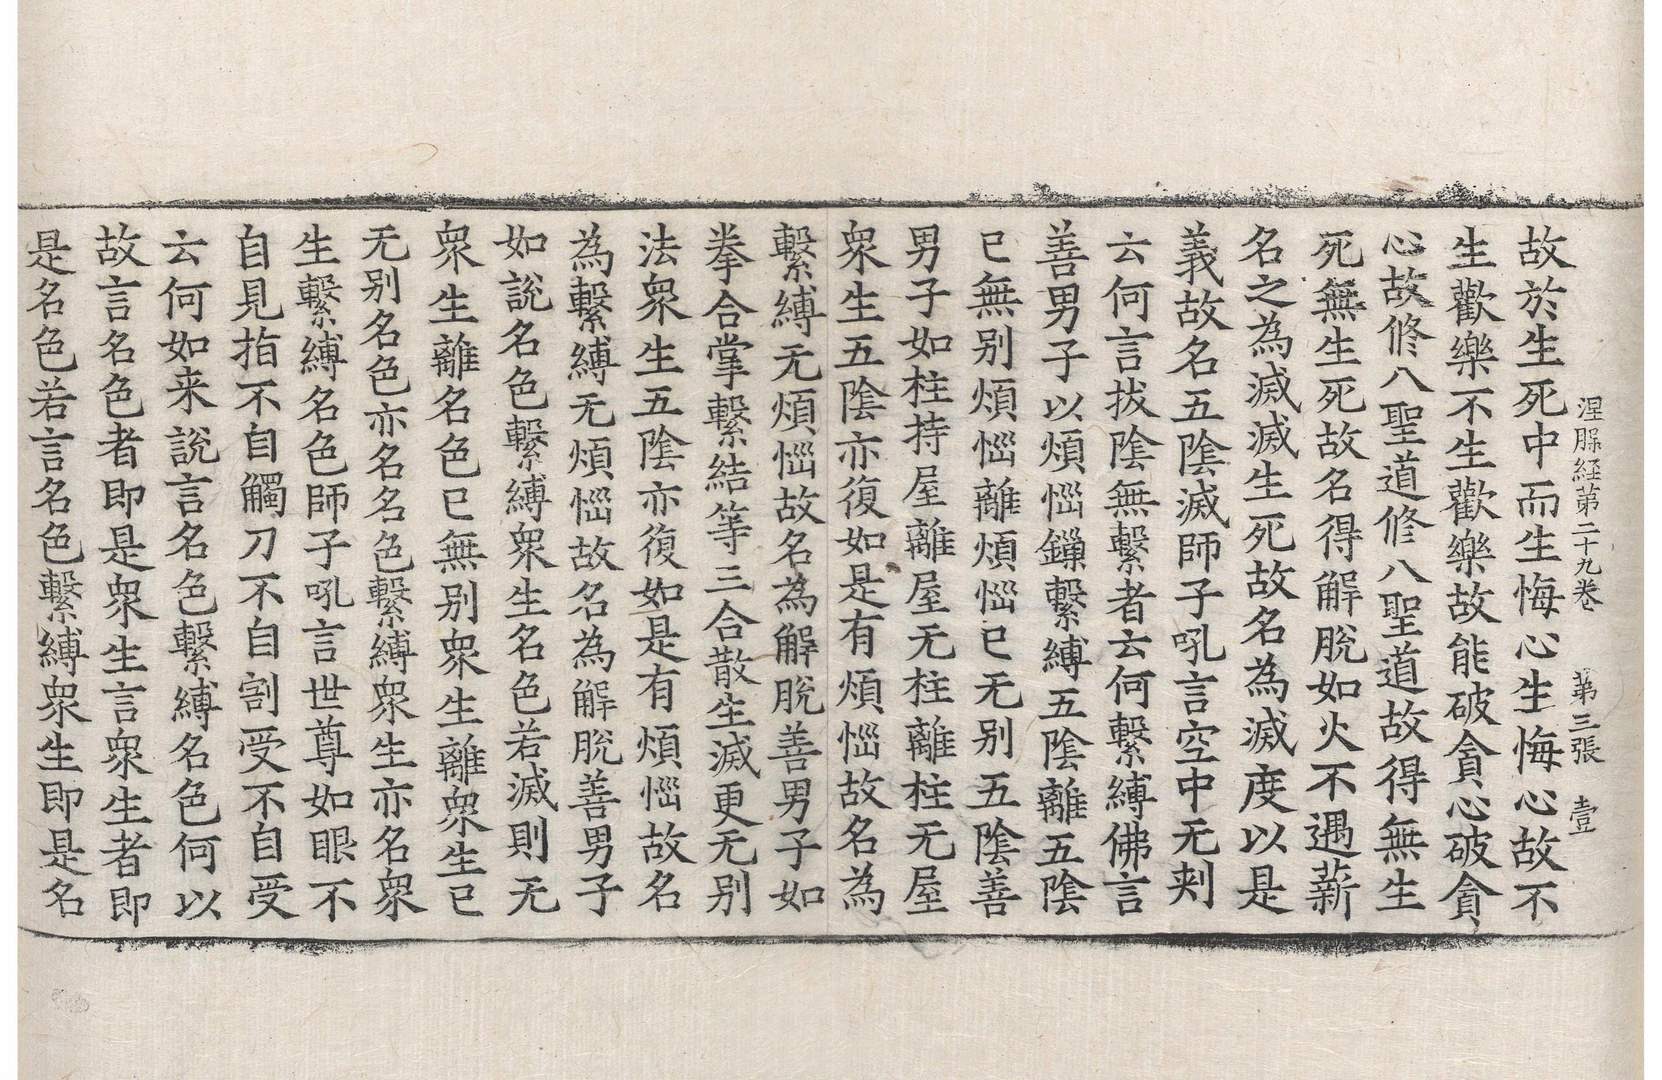 涅槃経第二十九卷 第三張 壹
故於生死中而生悔心生悔心故不
生歡樂不生歡樂故能破貪心破貪
心故修八聖道修八聖道故得無生
死無生死故名得解脫如火不遇薪
名之為滅滅生死故名為滅度以是
義故名五陰滅師子吼言空中无刺
云何言拔陰無繫者云何繫縛佛言
善男子以煩惱鏁繫縛五陰離五陰
已無別煩惱離煩惱已无別五陰善
男子如柱持屋離屋无柱離柱无屋
眾生五陰亦復如是有煩惱故名為
繫縛无煩惱故名為解脫善男子如
拳合掌繫結等三合散生滅更无別
法眾生五陰亦復如是有煩惱故名
為繫縛无煩惱故名為解脫善男子
如說名色繫縛眾生名色若滅則无
眾生離名色已無別眾生離眾生已
无別名色亦名名色繫縛眾生亦名眾
生繫縛名色師子吼言世尊如眼不
自見指不自觸刀不自割受不自受
云何如来說言名色繫縛名色何以
故言名色者即是眾生言眾生者即
是名色若言名色繫縛眾生即是名